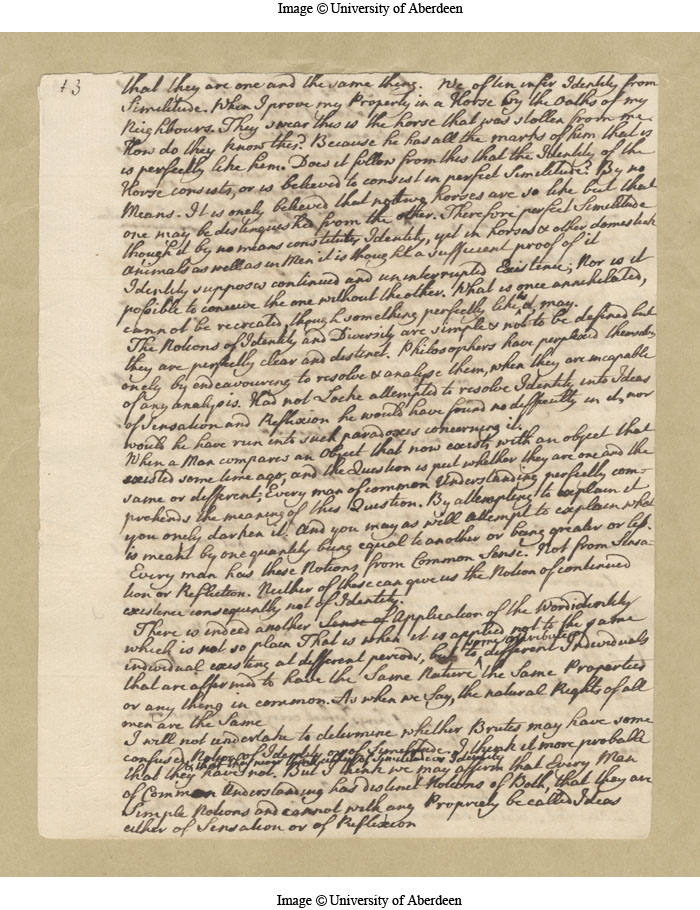 Image © University of Aberdeen
13
that they are one and the same thing. We often infer Identity from
Similitude. When I prove my Property in a Horse by the Oaths of my
Neighbours. They swear this is the horse that was stollen from me
How do they know this? Because he has all the marks of him that is
is perfectly like him. Does it follow from this that the Identity of the
Horse consists, or is believed to consist in perfect Similitude. By no
Means. It is onely believed that no two horses are so like but that
one may be distinguished from the other. Therefore perfect Similitude
though it by no means constitute Identity, yet in horses & other domestick
Animals as well as in Men it is thought a sufficient proof of it
Identity supposes continued and uninterrupted Existence; Nor is it
possible to conceive the one without the other. What is once annihilated,
cannot be recreated, though something perfectly like it, may.
The Notions of Identity and Diversity are simple & not to be defined but
they are perfectly clear and distinct. Philosophers have perplexed themselves
onely by endeavouring to resolve & analyse them, when they are incapable
of any analysis. Had not Locke attempted to resolve Identity into Ideas
of Sensation and Reflexion he would have found no difficulty in it, nor
would he have run into such paradoxes concerning it.
When a Man compares an Object that now exists with an object that
existed some time ago, and the Question is put whether they are one and the
same or different, Every man of common Understanding perfectly com-
prehends the meaning of this Question. By attempting to explain it
you onely darken it. And you may as well attempt to explain what
is meant by one quantity being equal to another or being greater or less.
Every man has these Notions from Common Sense. Not from Sensa-
tion or Reflection. Neither of these can give us the Notion of continued
existence consequently not of Identity.
There is indeed another Sense of Application of the Word identity
which is not so plain That is when it is applied not to the same
individual existing at different periods, but to some attribute of different Individuals
that are affirmed to have the Same Nature the Same Properties
or any thing in common. As when we Say, the natural Rights of all
men are the Same
I will not undertake to determine whether Brutes may have some
confused Notion of Identity or of Similitude. I think it more probable
that they have not. But I think we may affirm that Every Man
of Common Understanding has distinct Notions of Both, that they are
Simple Notions and cannot with any Propriety be called Ideas
either of Sensation or of Reflexion
Image © University of Aberdeen